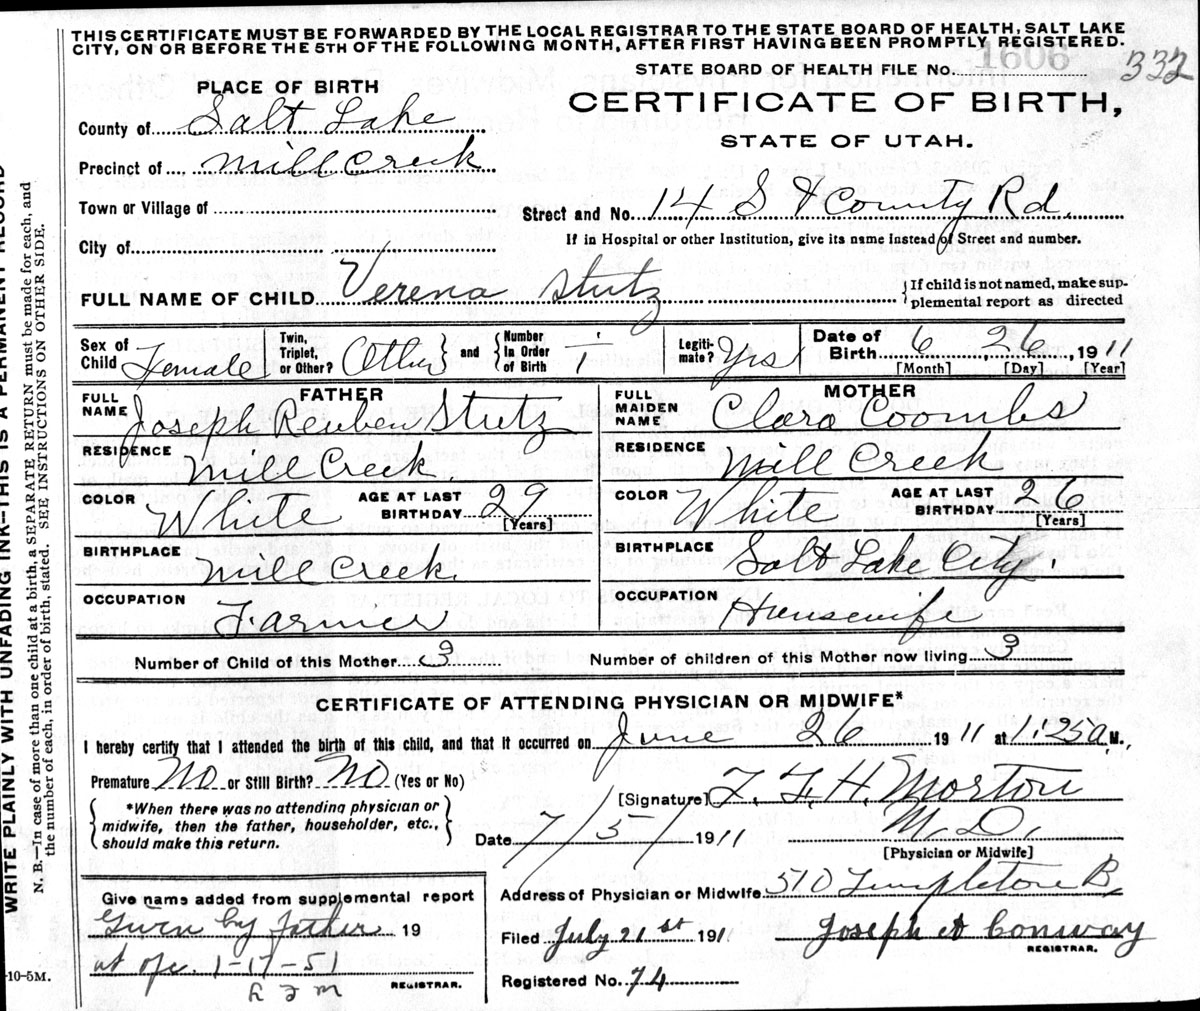 THIS CERTIFICATE MUST BE FORWARDED BY THE LOCAL REGISTRAR TO THE STATE BOARD OF HEALTH, SALT LAKE
CITY, ON OR BEFORE THE 5TH OF THE FOLLOWING MONTH, AFTER FIRST HAVING BEEN PROMPTLY REGISTERED.
STATE BOARD OF HEALTH FILE No. 1606 332
PLACE OF BIRTH
CERTIFICATE OF BIRTH,
County of Salt Lake
STATE OF UTAH.
Precinct of Mill Creek
Town or Village of
Street and No. 14 S & County Rd.
City of
If in Hospital or other Institution, give its name instead of Street and number.
FULL NAME OF CHILD Verena Stutz
If child is not named, make sup-
plemental report as directed
Sex of Child Female
Twin, Triplet, or Other? Other and Number In Order of Birth 1
Legiti-mate? Yes
Date of Birth 6 26, 1911
[Month] [Day] [Year]
FATHER
FULL NAME Joseph Reuben Stutz
RESIDENCE Mill Creek.
COLOR White AGE AT LAST BIRTHDAY 29
[Years]
BIRTHPLACE Mill Creek.
OCCUPATION Farmer
MOTHER
FULL MAIDEN NAME Clara Coombs
RESIDENCE Mill Creek
COLOR White AGE AT LAST BIRTHDAY 26
[Years]
BIRTHPLACE Salt Lake City.
OCCUPATION Housewife
Number of Child of this Mother 3 Number of children of this Mother now living 3
CERTIFICATE OF ATTENDING PHYSICIAN OR MIDWIFE*
I hereby certify that I attended the birth of this child, and that it occurred on June 26 1911 at 1:25 a M.
Premature No or Still Birth? No (Yes or No)
*When there was no attending physician or
midwife, then the father, householder, etc.,
should make this return.
[Signature] F. F. H. Morton
M.D.
Date 7/5/ 1911
[Physician or Midwife]
Address of Physician or Midwife 510 Templeton B
Give name added from supplemental report
Given by father 19
at ofc. 1-17-51
REGISTRAR.
Filed July 21st 1911 Joseph A Conway
REGISTRAR.
Registered No. 74
WRITE PLAINLY WITH UNFADING INK—THIS IS A PERMANENT RECORD
N. B.—In case of more than one child at a birth, a SEPARATE RETURN must be made for each, and
the number of each, in order of birth, stated. SEE INSTRUCTIONS ON OTHER SIDE.
-10-5M.